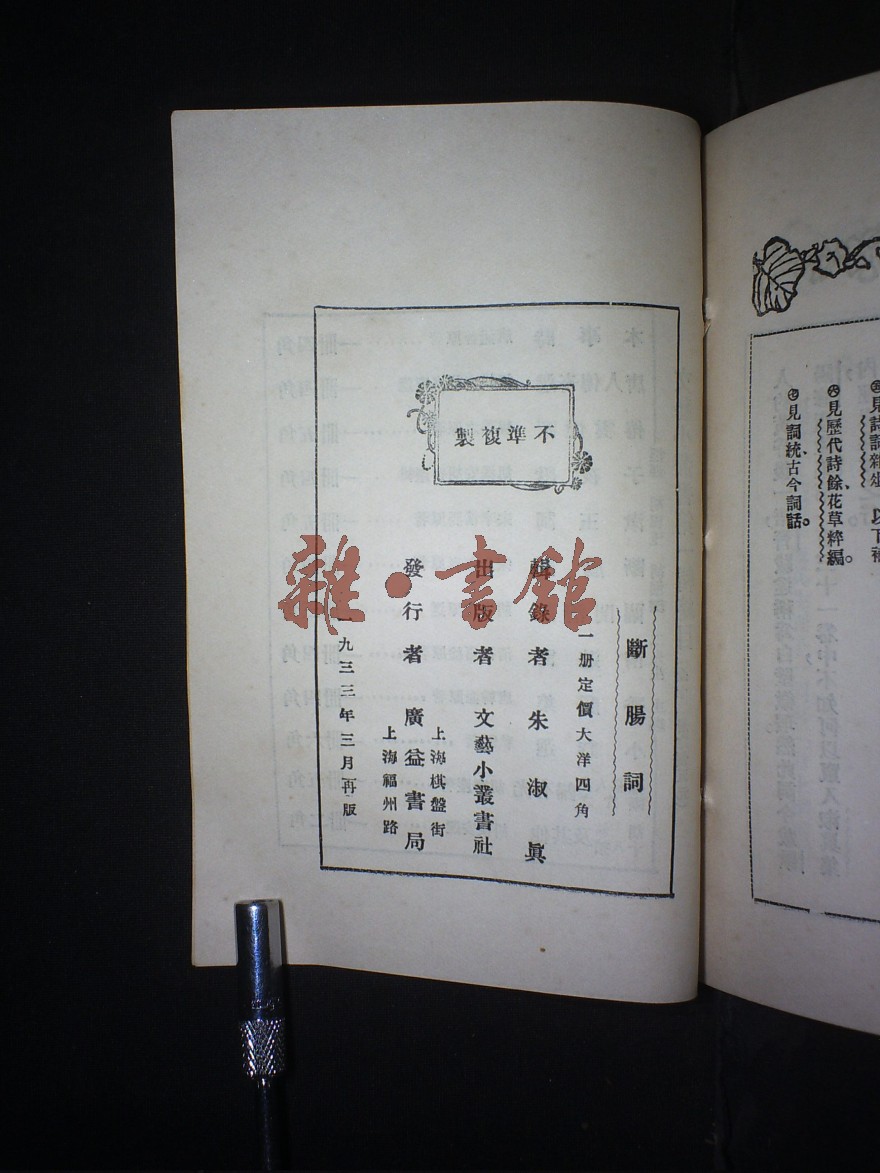 不準複製
斷腸詞
一册定價大洋四角
輯錄者 朱淑眞
出版者 文藝小叢書社
發行者 廣益書局
上海棋盤街
上海福州路
一九三三年三月再版
雜·書館
㊅見歷代詩餘、花草粹編。
㊆見詞統古今詞話。